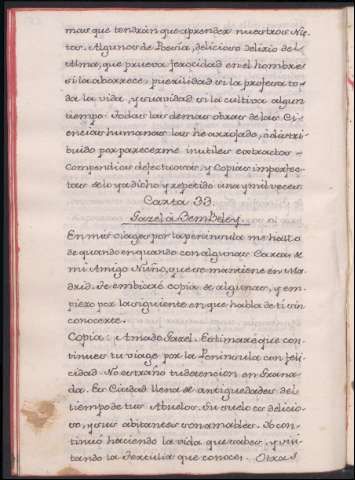 mas que tendrán que aprender nuestros Nie-
tos. Algunos de Poesia, delicioso delirio del
Alma, que prueva ferocidad en el hombre
si la aborrece, puerilidad si la profesa to-
da la vida, y suavidad si la cultiva algun
tiempo. Todas las demas obras de las Ci-
encias humanas las he arrojado, ó distri-
buido por parecerme inutiles extractos
Compendios defectuosos, y Copias imperfec-
tas de lo ya dicho y repetido una y mil veces
Carta 33.
Gazel á Ben Beley.
En mis viages por la peninsula me hallo
de quando en quando con algunas Cartas de
mi Amigo Nuño, que se mantiene en Ma-
drid. Te embiaré copia de algunas, y em-
piezo por la siguiente en que habla de ti sin
conocerte.
Copia: Amado Gazel. Estimaré que con-
tinues tu viage por la Peninsula con feli-
cidad. No extraño tu detencion en Grana-
da. Es Ciudad llena de antiguedades del
tiempo de tus Abuelos. Su suelo es delicio-
so, y sus abitantes son amables. Yo con-
tinuo haciendo la vida que sabes, y visi-
tando la Tertulia que conoces. Otras